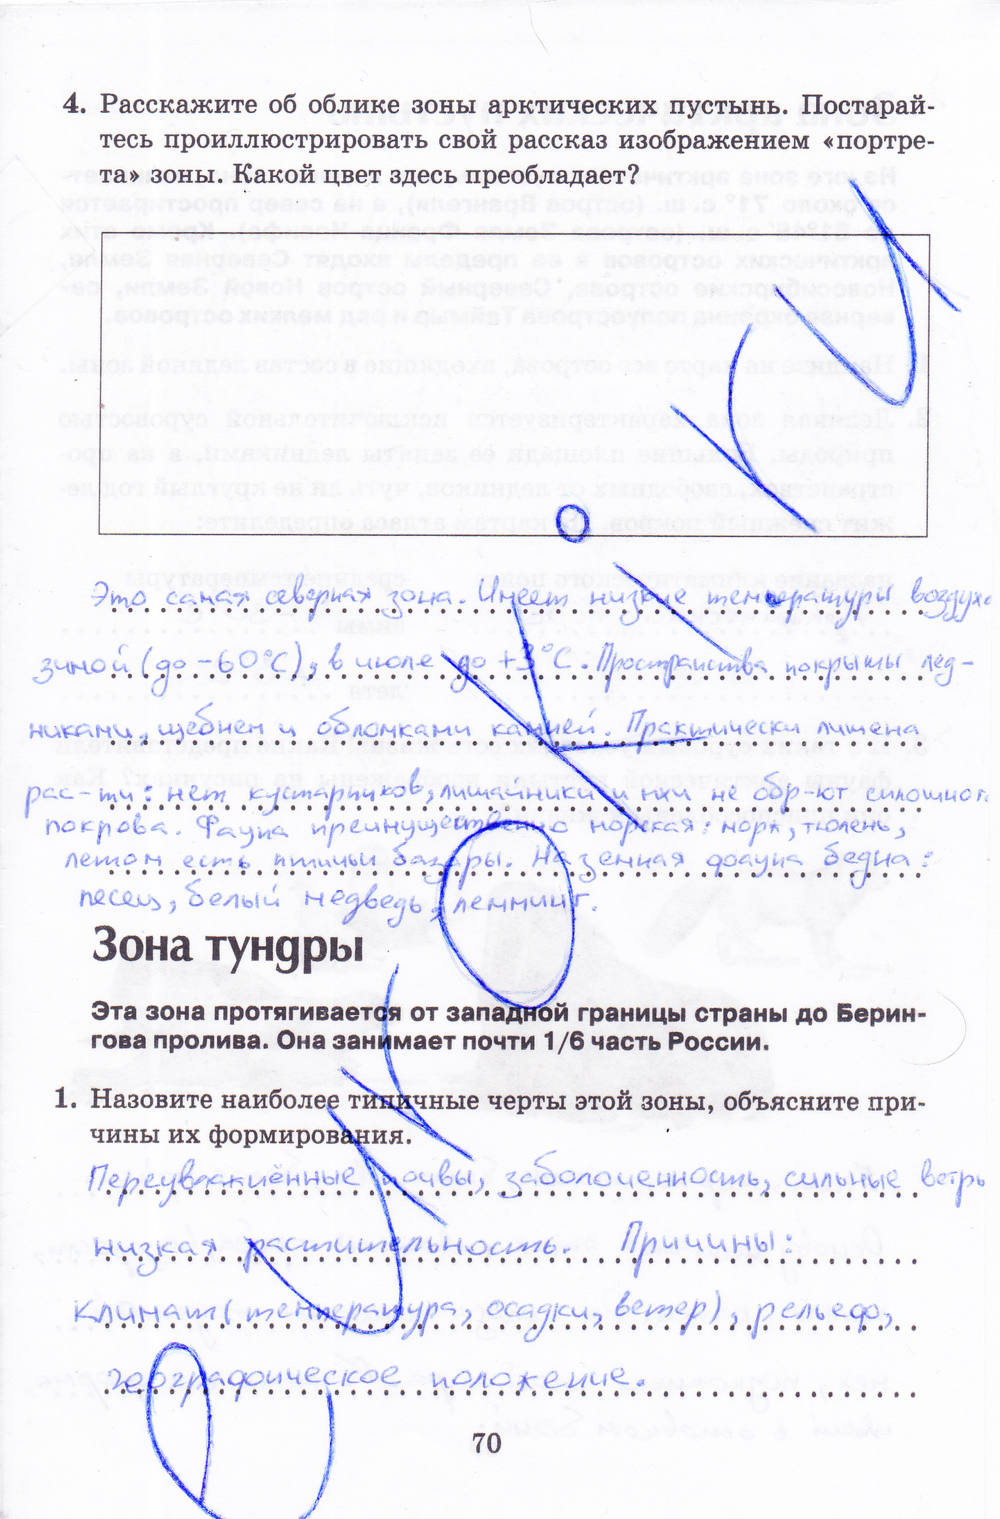 4. Расскажите об облике зоны арктических пустынь. Постарай-
тесь проиллюстрировать свой рассказ изображением «портре-
та» зоны. Какой цвет здесь преобладает?
Это самая северная зона. Имеет низкие температуры воздуха
зимой (до -60°С), в июле до +3°С. Пространства покрыты лед-
никами, щебнем и обломками камней. Практически лишена
рас-ти: нет кустарников, лишайники и мхи не обр-ют сплошного
покрова. Фауна преимущественно морская: морж, тюлень,
летом есть птичьи базары. Наземная фауна бедна:
песец, белый медведь, лемминг.
Зона тундры
Эта зона протягивается от западной границы страны до Берин-
гова пролива. Она занимает почти 1/6 часть России.
1. Назовите наиболее типичные черты этой зоны, объясните при-
чины их формирования.
Переувлажнённые почвы, заболоченность, сильные ветры
низкая растительность. Причины:
Климат (температура, осадки, ветер), рельеф,
географическое положение.
70